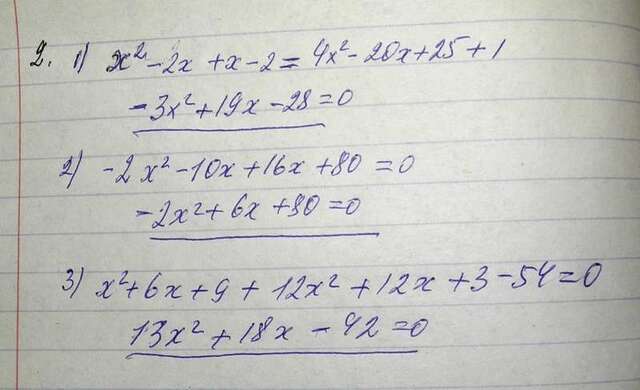 2. 1) x² - 2x + x - 2 = 4x² - 20x + 25 + 1
-3x² + 19x - 28 = 0
2) -2x² - 10x + 16x + 80 = 0
-2x² + 6x + 80 = 0
3) x² + 6x + 9 + 12x² + 12x + 3 - 54 = 0
13x² + 18x - 42 = 0